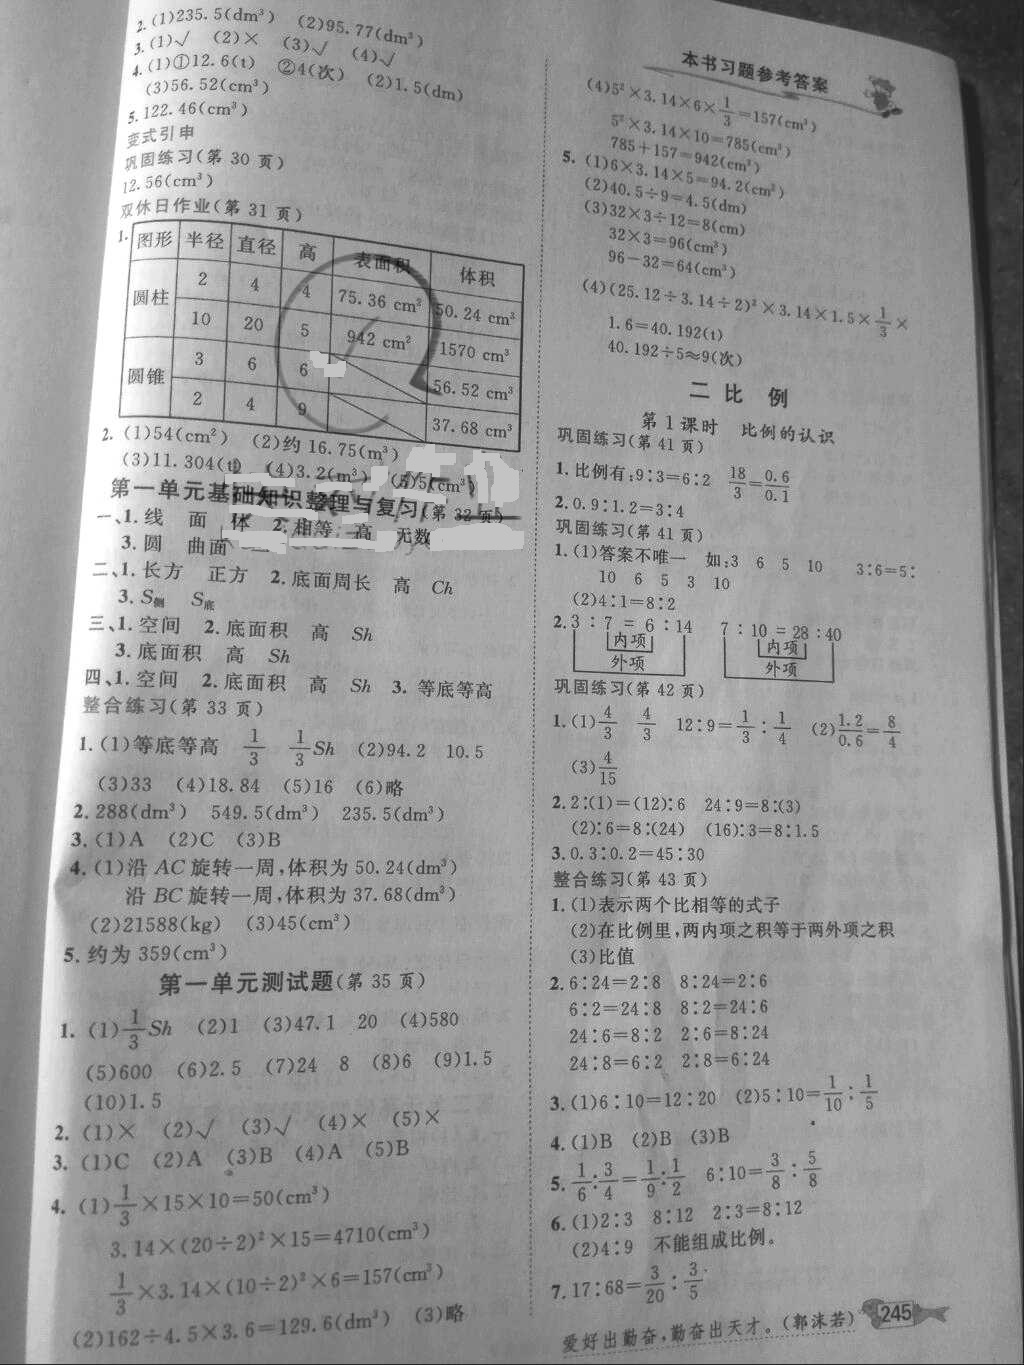 2.(1)235.5(dm³) (2)95.77(dm³)
3.(1)√ (2)× (3)√ (4)√
4.(1)①12.6(t) ②4(次) (2)1.5(dm)
(3)56.52(cm³)
5.122.46(cm³)
变式引申
巩固练习(第30页)
12.56(cm³)
双休日作业(第31页)
1.
图形 半径 直径 高 表面积 体积
圆柱 2 4 4 75.36 cm² 50.24 cm³
10 20 5 942 cm² 1570 cm³
圆锥 3 6 6 56.52 cm³
2 4 9 37.68 cm³
2.(1)54(cm²) (2)约16.75(m³)
(3)11.304(t) (4)3.2(m³) (5)5(cm³)
第一单元基础知识整理与复习(第32页)
一、1.线 面 体 2.相等 高 无数
3.圆 曲面
二、1.长方 正方 2.底面周长 高 Ch
3.S侧 S底
三、1.空间 2.底面积 高 Sh
3.底面积 高 Sh
四、1.空间 2.底面积 高 Sh 3.等底等高
整合练习(第33页)
1.(1)等底等高 1/3 1/3Sh (2)94.2 10.5
(3)33 (4)18.84 (5)16 (6)略
2.288(dm³) 549.5(dm³) 235.5(dm³)
3.(1)A (2)C (3)B
4.(1)沿AC旋转一周,体积为50.24(dm³)
沿BC旋转一周,体积为37.68(dm³)
(2)21588(kg) (3)45(cm³)
5.约为359(cm³)
第一单元测试题(第35页)
1.(1)1/3Sh (2)1 (3)47.1 20 (4)580
(5)600 (6)2.5 (7)24 8 (8)6 (9)1.5
(10)1.5
2.(1)× (2)√ (3)√ (4)× (5)×
3.(1)C (2)A (3)B (4)A (5)B
4.(1)1/3×15×10=50(cm³)
3.14×(20÷2)²×15=4710(cm³)
1/3×3.14×(10÷2)²×6=157(cm³)
(2)162÷4.5×3.6=129.6(dm³) (3)略
本书习题参考答案
(4)5²×3.14×6×1/3=157(cm³)
5²×3.14×10=785(cm³)
785+157=942(cm³)
5.(1)6×3.14×5=94.2(cm²)
(2)40.5÷9=4.5(dm)
(3)32×3÷12=8(cm)
32×3=96(cm³)
96-32=64(cm³)
(4)(25.12÷3.14÷2)²×3.14×1.5×1/3×
1.6=40.192(t)
40.192÷5≈9(次)
二 比 例
第1课时 比例的认识
巩固练习(第41页)
1.比例有:9∶3=6∶2 18/3=0.6/0.1
2.0.9∶1.2=3∶4
巩固练习(第41页)
1.(1)答案不唯一 如:3 6 5 10 3∶6=5∶
10 6 5 3 10
(2)4∶1=8∶2
2.3∶7=6∶14 7∶10=28∶40
内项 内项
外项 外项
巩固练习(第42页)
1.(1)4/3 4/3 12∶9=1/3∶1/4 (2)1.2/0.6=8/4
(3)4/15
2.2∶(1)=(12)∶6 24∶9=8∶(3)
(2)∶6=8∶(24) (16)∶3=8∶1.5
3.0.3∶0.2=45∶30
整合练习(第43页)
1.(1)表示两个比相等的式子
(2)在比例里,两内项之积等于两外项之积
(3)比值
2.6∶24=2∶8 8∶24=2∶6
6∶2=24∶8 8∶2=24∶6
24∶6=8∶2 2∶6=8∶24
24∶8=6∶2 2∶8=6∶24
3.(1)6∶10=12∶20 (2)5∶10=1/10∶1/5
4.(1)B (2)B (3)B
5.1/6∶3/4=1/9∶1/2 6∶10=3/8∶5/8
6.(1)2∶3 8∶12 2∶3=8∶12
(2)4∶9 不能组成比例。
7.17∶68=3/20∶3/5
爱好出勤奋,勤奋出天才。(郭沫若)
245